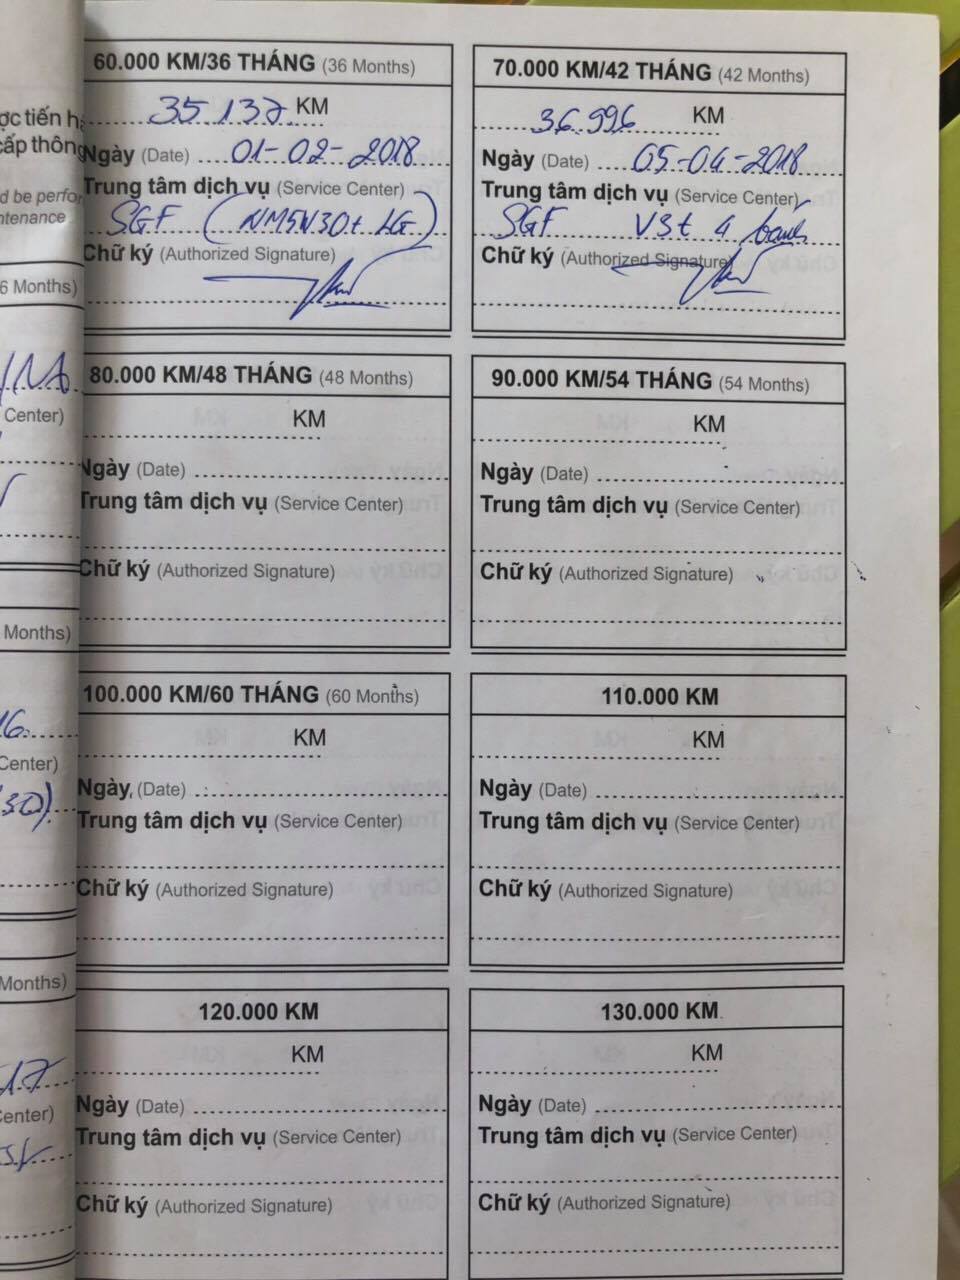 ợc tiến h
cấp thông
d be perfor
ntenance
6 Months)
Center)
Months)
16.
Center)
30).
Months)
17
Center)
60.000 KM/36 THÁNG (36 Months)
35 137 KM
Ngày (Date) 01-02-2018
Trung tâm dịch vụ (Service Center)
SGF (NM5W30+ LG)
Chữ ký (Authorized Signature)
70.000 KM/42 THÁNG (42 Months)
36.996 KM
Ngày (Date) 05-04-2018
Trung tâm dịch vụ (Service Center)
SGF VSt 4 bánh
Chữ ký (Authorized Signature)
80.000 KM/48 THÁNG (48 Months)
KM
Ngày (Date)
Trung tâm dịch vụ (Service Center)
Chữ ký (Authorized Signature)
90.000 KM/54 THÁNG (54 Months)
KM
Ngày (Date)
Trung tâm dịch vụ (Service Center)
Chữ ký (Authorized Signature)
100.000 KM/60 THÁNG (60 Months)
KM
Ngày (Date)
Trung tâm dịch vụ (Service Center)
Chữ ký (Authorized Signature)
110.000 KM
KM
Ngày (Date)
Trung tâm dịch vụ (Service Center)
Chữ ký (Authorized Signature)
120.000 KM
KM
Ngày (Date)
Trung tâm dịch vụ (Service Center)
Chữ ký (Authorized Signature)
130.000 KM
KM
Ngày (Date)
Trung tâm dịch vụ (Service Center)
Chữ ký (Authorized Signature)